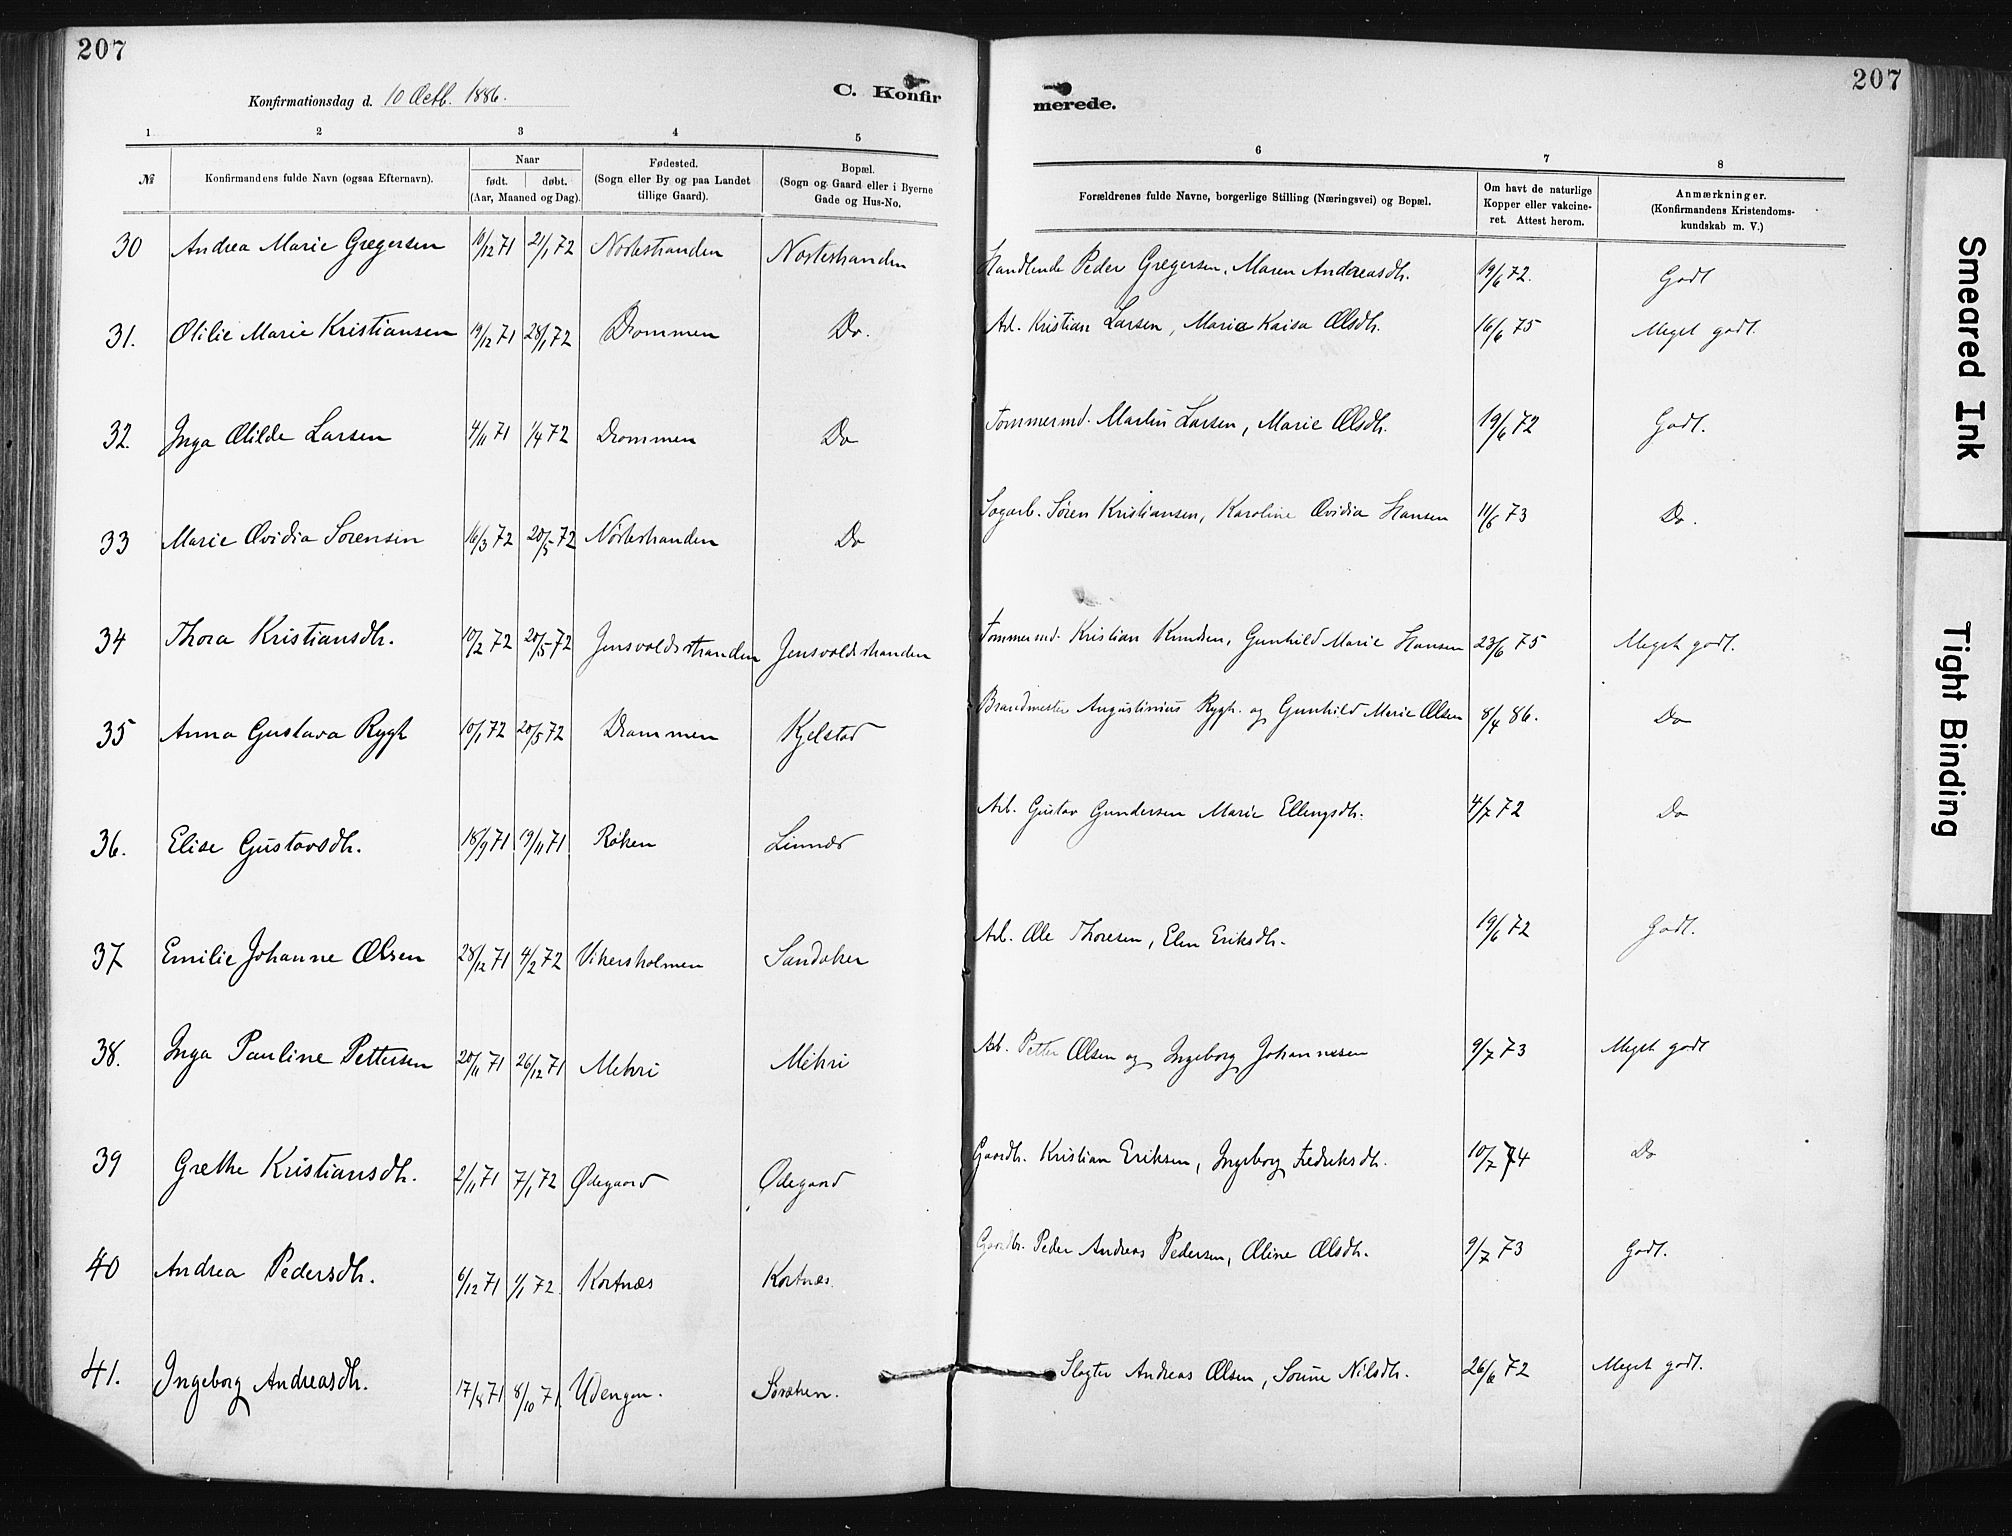 207
207
Konfirmationsdag d. 10 Octb. 1886.
C. Konfir
merede.
1 2 3 4 5 6 7 8
№
Konfirmandens fulde Navn (ogsaa Efternavn).
Naar
født. døbt.
(Aar, Maaned og Dag).
Fødested.
(Sogn eller By og paa Landet
tillige Gaard).
Bopæl.
(Sogn og Gaard eller i Byerne
Gade og Hus-No.
Forældrenes fulde Navne, borgerlige Stilling (Næringsvei) og Bopæl.
Om havt de naturlige
Kopper eller vakcine-
ret. Attest herom.
Anmærkninger.
(Konfirmandens Kristendoms-
kundskab m. V.)
30 Andrea Marie Gregersen 10/12 71 21/1 72 Nøstestranden Nøstestranden Handlende Peder Gregersen, Maren Andreasdtr. 19/6 72. Godt
31. Otilie Marie Kristiansen 19/12 71 28/1 72 Drammen Do. Arb. Kristian Larsen, Maria Kaisa Olsdtr. 16/6 75 Meget godt.
32. Inga Otilde Larsen 4/11 71 1/4 72 Drammen Do Tømmermd. Martin Larsen, Marie Olsdtr. 19/6 72 Godt.
33 Marie Ovidia Sørensen 16/3 72 20/5 72 Nøstestranden Do Sagarb. Søren Kristiansen, Karoline Ovidia Hansen 11/6 73 Do.
34 Thora Kristiansdtr. 10/2 72 20/5 72 Jensvoldsstranden Jensvoldstranden Tømmermd. Kristian Knudsen, Gunhild Marie Hansen 23/6 75 Meget godt.
35 Anna Gustava Rygh 10/1 72 20/5 72 Drammen Kjelstad Brandmester Augustinius Rygh. og Gunhild Marie Olsen 8/4 86. Do
36. Elise Gustavsdtr. 18/9 71 19/11 71 Røken Linnes Arb. Gustav Gundersen Marie Ellingsdtr. 4/7 72 Do
37 Emilie Johanne Olsen 28/12 71 4/2 72 Vikersholmen Sandaker Arb. Ole Thoresen, Elen Eriksdtr. 19/6 72 Godt.
38. Inga Pauline Pettersen 20/11 71 26/12 71 Mekri Mekri Arb. Petter Olsen og Ingeborg Johannesen 9/7 73 Meget godt
39 Grethe Kristiansdtr. 2/11 71 7/1 72 Ødegaard Ødegaard Gaardb. Kristian Eriksen, Ingeborg Fredriksdtr. 10/7 74 Do
40 Andrea Pedersdtr. 6/12 71 1/1 72. Kortnæs Kortnæs. Gaardbr. Peder Andreas Pedersen, Oline Olsdtr. 9/7 73 Godt.
41. Ingeborg Andreasdtr. 17/8 71 8/10 71. Udengen. Slagter Andreas Olsen, Nilsdtr. 26/6 72 Meget godt.
Smeared Ink
Tight Binding